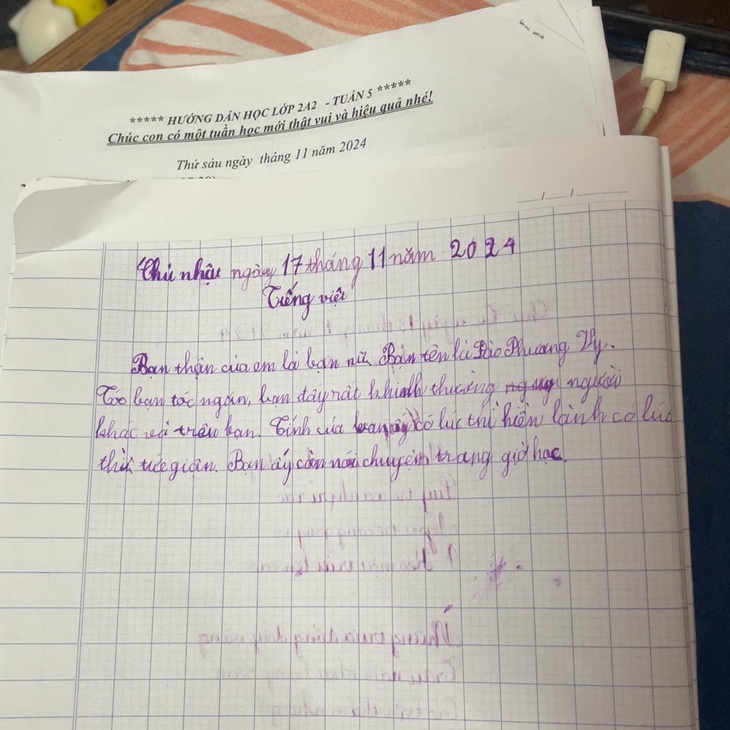 ***** HƯỚNG DẪN HỌC LỚP 2A2 - TUẦN 5 *****
Chúc con có một tuần học mới thật vui và hiệu quả nhé!
Thứ sáu ngày tháng 11 năm 2024
Chủ nhật ngày 17 tháng 11 năm 2024
Tiếng việt
Bạn thận của em là bạn nữ. Bạn tên là Đào Phương Vy.
bạn tóc ngắn, bạn đấy rất khinh thường người
khác và trêu bạn. Tính của bạn ấy có lúc thì hiền lành có lúc
thì tức giận. Bạn ấy còn nói chuyện trong giờ học.